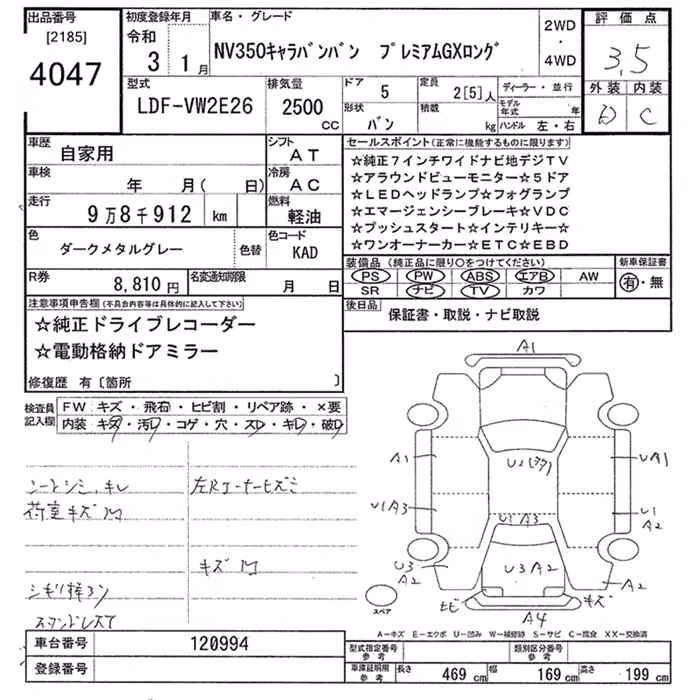 出品番号
[2185]
4047
初度登録年月
令和
3 1月
車名・グレード
NV350キャラバンバン プレミアムGXロング
2WD
・
4WD
評価点
3.5
型式
LDF-VW2E26
排気量
2500
CC
ドア
5
定員
2[5]人
ディーラー・並行
形状
バン
積載
kg
モデル年式 年
ハンドル 左・右
外装 内装
D C
車歴
自家用
シフト
AT
車検
年 月( 日)
冷房
AC
走行
9万8千912 km
燃料
軽油
色
ダークメタルグレー
色替
色コード
KAD
R券
8,810円
名変通知期限
月 日
セールスポイント(正常に機能するものに限ります)
☆純正7インチワイドナビ地デジTV
☆アラウンドビューモニター☆5ドア
☆LEDヘッドランプ☆フォグランプ
☆エマージェンシーブレーキ☆VDC
☆プッシュスタート☆インテリキー☆
☆ワンオーナーカー☆ETC☆EBD
装備品(純正品に限り○をつけてください)
PS PW ABS エアB AW
SR ナビ TV カワ
新車保証書
有・無
後日品
保証書・取説・ナビ取説
注意事項申告欄(不具合内容等は具体的に記入して下さい)
☆純正ドライブレコーダー
☆電動格納ドアミラー
修復歴 有〔箇所 〕
検査員
記入欄
FW キズ・飛石・ヒビ割・リペア跡・×要
内装 キズ・汚レ・コゲ・穴・スレ・キレ・破レ
シートシミ、キレ
荷室キズ
左Rコーナーヒズミ
キズ
A1
A1
U2
UA1
U1A3
U1A3
U1
A2
U3
A2
U3A2
A2
ヒビ
キズ
A4
スペア
A-キズ E-エクボ U-凹み W-補修跡 S-サビ C-腐食 XX-交換済
車台番号
120994
登録番号
型式指定番号
参考
類別区分番号
参考
車庫証明用
参考
長さ 469 cm 幅 169 cm 高さ 199 cm